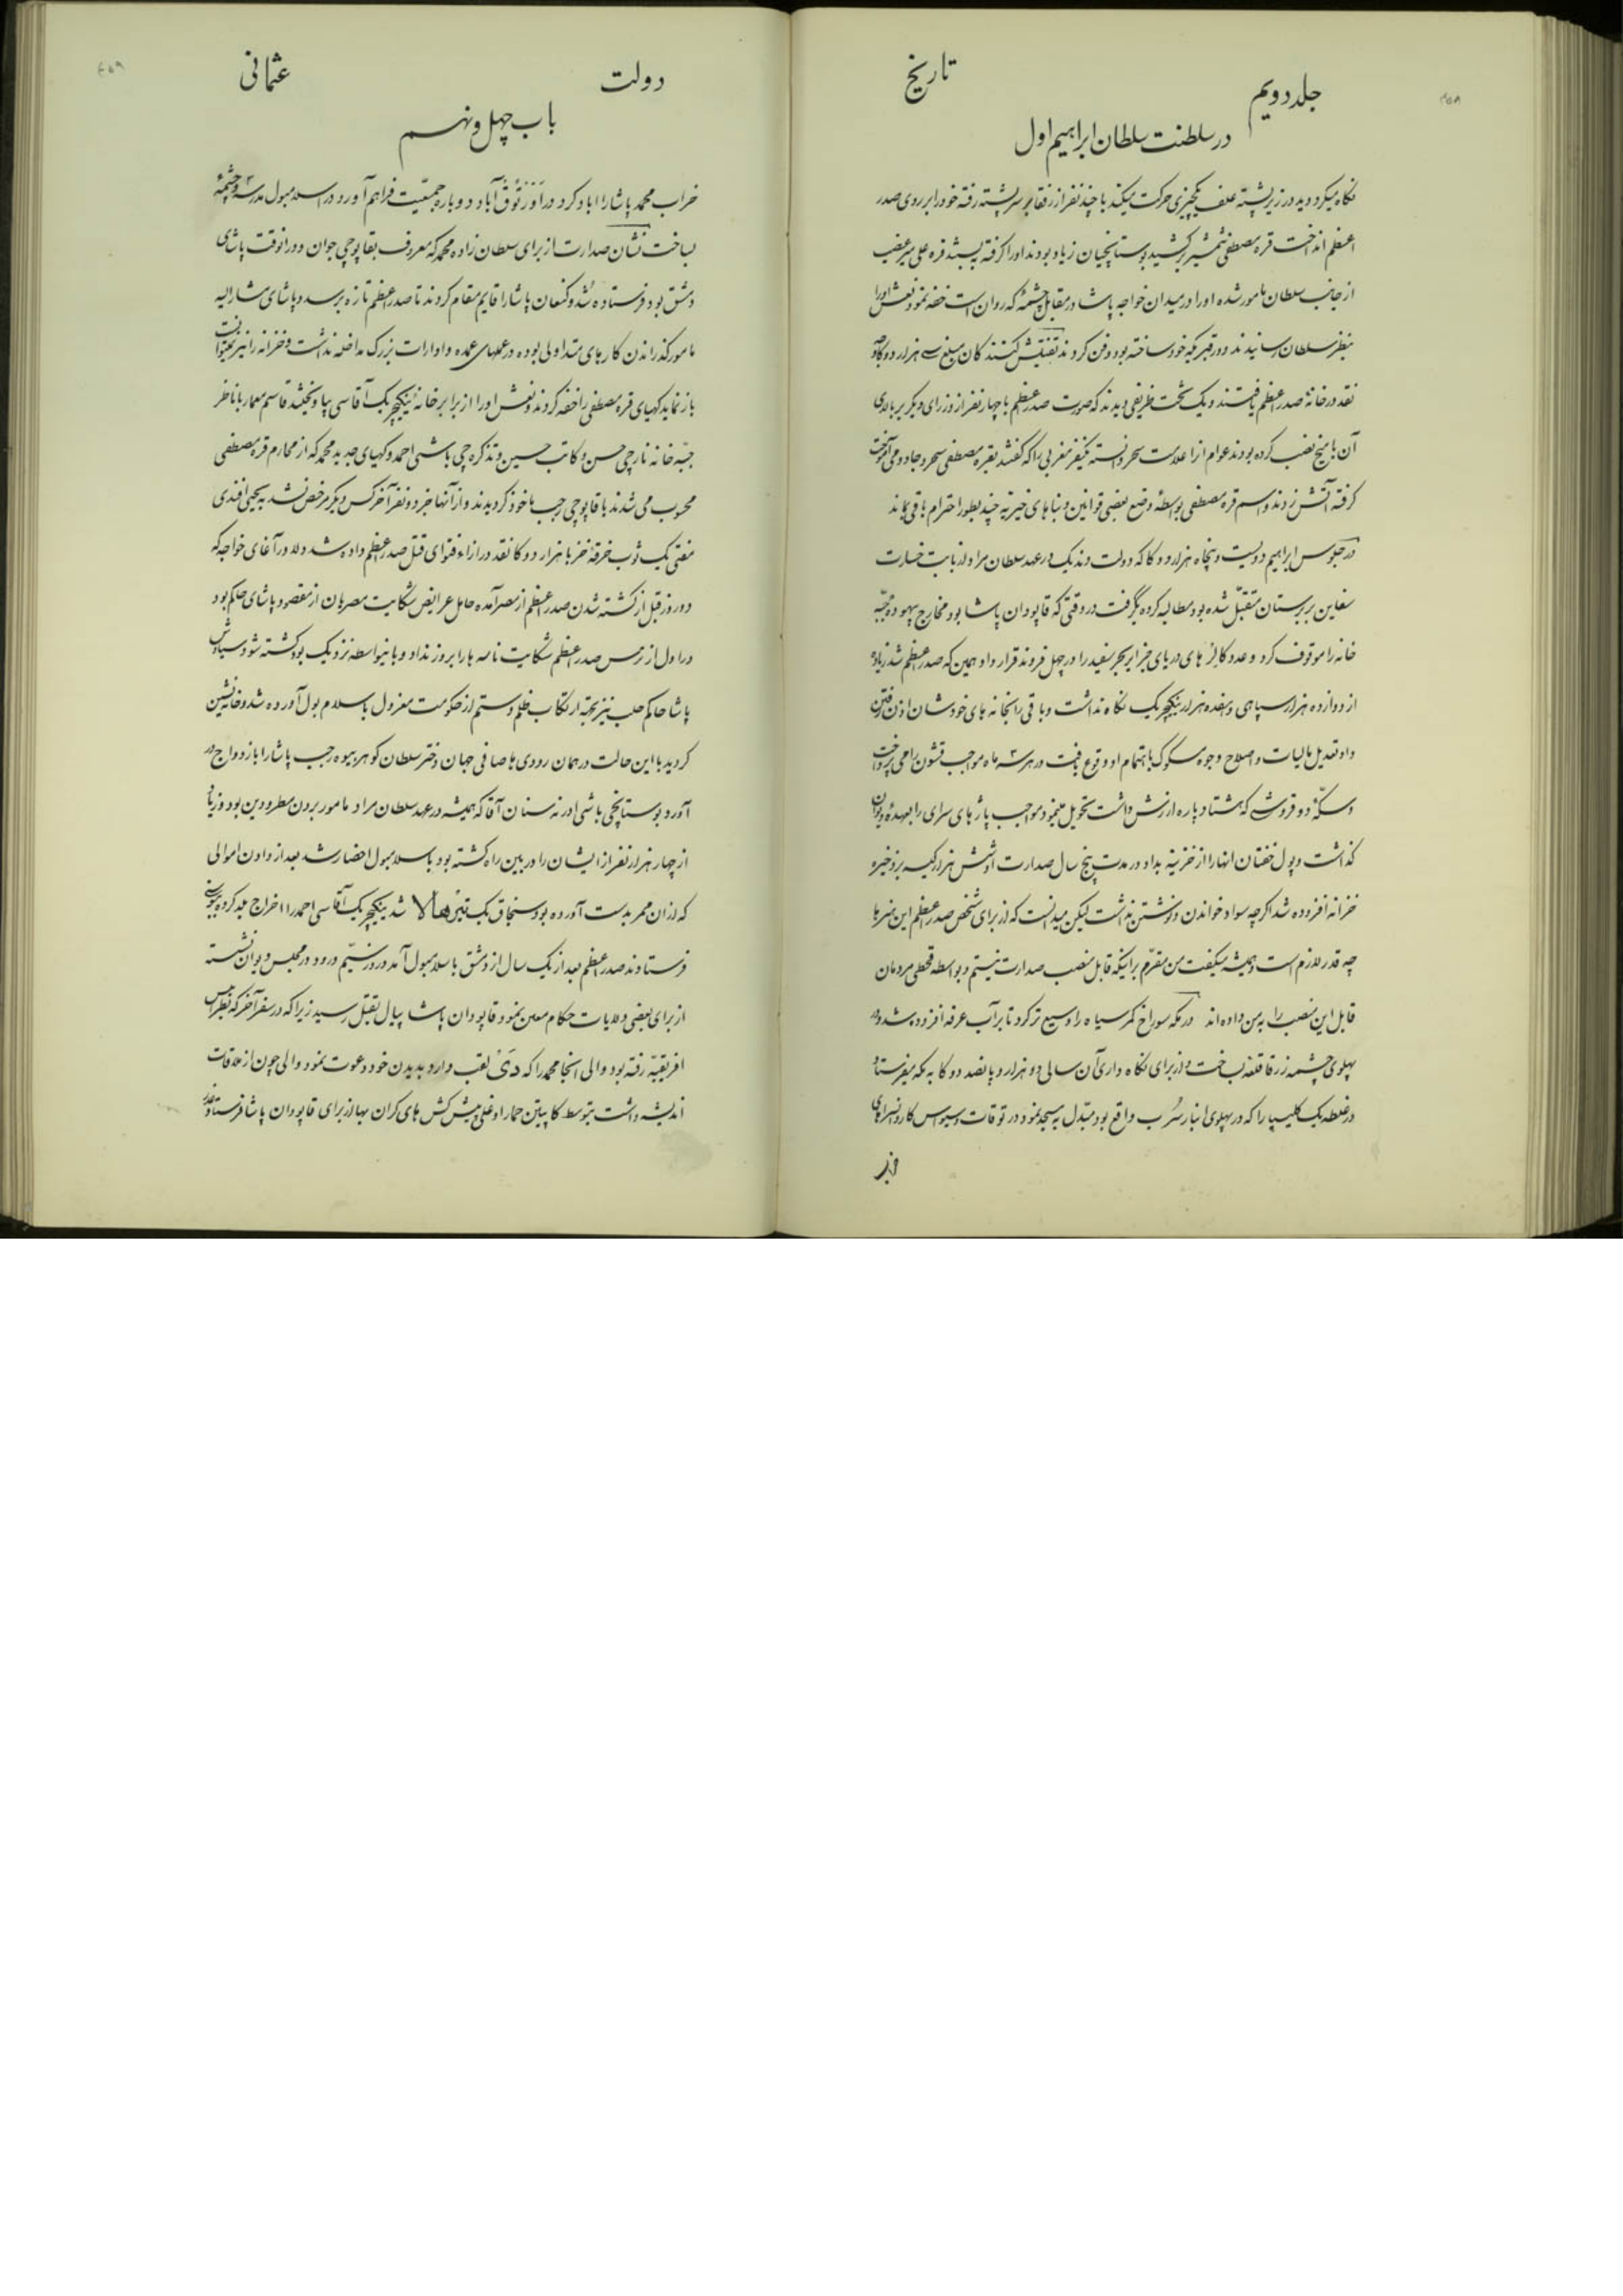 جلد دویم
تاریخ
در سلطنت سلطان ابراهیم اول
نکاه میکرد دید در زیر پشته علف یکچیزی حرکت میکند با چند نفر از رفقا بر سر پشته رفته خود را بر روی صدر
اعظم انداخت قره مصطفی شمشیر کشید بوستانچیان زیاد بودند اورا کرفته بستند قره علی میرغضب
از جانب سلطان مامور شده اورا در میدان خواجه پاشا در مقابل چشمهٔ که روان است خفه نمود نعش اورا
بنظر سلطان رسانیدند و در قبریکه خود ساخته بود دفن کردند تفتیش کنندکان مبلغ سی هزار دوکای
نقد در خانهٔ صدر اعظم یافتند و یک تخت ظریفی دیدند که صورت صدر اعظم با چهار نفر از وزرای دیکر بر بالای
آن با میخ نصب کرده بودند عوام انرا علامت سحر دانسته یکنفر مغربی را که کفتند بقره مصطفی سحر و جادو می آموخت
کرفته آتش زدند و اسم قره مصطفی بواسطهٔ وضع بعضی قوانین و بناهای خیریه چند بطور احترام باقی بماند
در جلوس ابراهیم دویست و پنجاه هزار دوکا که دولت وندیک در عهد سلطان مراد از بابت خسارت
سفاین بربرستان متقبل شده بود مطالبه کرده بگرفت در وقتی که قاپودان پاشا بود مخارج بیهوده جبه
خانه را موقوف کرد و عدد کالرهای دریای جزایر بحر سفید را در چهل فروند قرار داد همین که صدر اعظم شد زیاده
از دوازده هزار سپاهی و هفده هزار ینکچریک نکاه نداشت و باقی را بخانه های خودشان اذن رفتن
داد تعدیل مالیات و اصلاح وجوه مسکوک باهتمام او وقوع یافت در هر سه ماه مواجب قشون را می پرداخت
و سکهٔ دو قروشی که هشتاد پاره ارزش داشت تحویل مینمود مواجب پاژهای سرای را بعهدهٔ دیوان
کذاشت و پول خفتان انها را از خزینه بداد در مدت پنج سال صدارت او شش هزار کیسه بر ذخیره
خزانه افزوده شد اکرچه سواد خواندن و نوشتن نداشت لیکن میدانست که از برای شخص صدر اعظم این هنرها
چه قدر لازم است و همیشه میکفت من مقرم بر اینکه قابل منصب صدارت نیستم و بواسطه قحطی مردمان
قابل این منصب را به من داده اند در مکه سوراخ کمر سیاه را وسیع تر کرد تا بر آب عرفه افزوده شد و در
پهلوی چشمه زرقا قلعه بساخت و از برای نکاه داری آن سالی دو هزار و پانصد دوکا به مکه میفرستاد
در غلطه یک کلیسیا را که در پهلوی انبار سرب واقع بود مبدل به مسجد نمود در توقات و سیواس کاروانسراهای
دولت
عثمانی
باب چهل و نهم
خراب محمد پاشا را اباد کرد در اوزتوق آباد دوباره جمعیت فراهم آورد در اسلامبول مدرسه و چشمهٔ
بساخت نشان صدارت از برای سلطان زاده محمد که معروف بقاپوچی جوان و در انوقت پاشای
دمشق بود فرستاده شد و کنعان پاشا را قایم مقام کردند تا صدر اعظم تازه برسد و پاشای مشار الیه
مامور کذراندن کارهای متداولی بوده در عملهای عمده و ادارات بزرک مداخله نداشت و خزانه را نیز نمیتوانست
باز نماید کهیای قره مصطفی را خفه کردند و نعش اورا از برابر خانهٔ ینکچریک آقاسی بیاویختند قاسم معمار با ناظر
جبه خانه نارچی حسن و کاتب حسین و تذکره چی باشی احمد و کهیای جدید محمد که از محارم قره مصطفی
محسوب می شدند با قاپوچی رجب ماخوذ کردیدند و از آنها جز دو نفر آخر کس دیکر مرخص نشد به یحیی افندی
مفتی یک ثوب خرقه خز با هزار دوکا نقد در ازاء فتوای قتل صدر اعظم داده شد دلاور آغای خواجه که
دو روز قبل از کشته شدن صدر اعظم از مصر آمده حامل عرایض شکایت مصریان از مقصود پاشای حاکم بود
در اول از ترس صدر اعظم شکایت نامه ها را بروز نداد و باینواسطه نزدیک بود کشته شود سیاوش
پاشا حاکم حلب نیز بجهة ارتکاب ظلم و ستم از حکومت معزول باسلامبول آورده شد و خانه نشین
کردید با این حالت در همان روزی ها صافی جهان دختر سلطان کوهر بیوه رجب پاشا را بازدواج در
آورد بوستانچی باشی ادرنه سنان آقا که همیشه در عهد سلطان مراد مامور بردن مطرودین بود و زیاده
از چهار هزار نفر از ایشان را در بین راه کشته بود باسلامبول احضار شد بعد از دادن اموالی
که از ان ممر بدست آورده بود سنجاق بک تیرهالا شد ینکچریک آقاسی احمد را اخراج بلد کرده
فرستادند صدر اعظم بعد از یک سال از دمشق باسلامبول آمد در روز سیم ورود در مجلس دیوان نشسته
از برای بعضی ولایات حکام معین نمود و قاپودان پاشا پیاله بقتل رسید زیرا که در سفر آخر که بطرابلس
افریقیه رفته بود والی انجا محمد را که دَیْ لقب دارد بدیدن خود دعوت نمود والی چون از ملاقات
اندیشه داشت بتوسط کاپیتن حمار اوغلی پیش کش های کران بها از برای قاپودان پاشا فرستاد و عذر